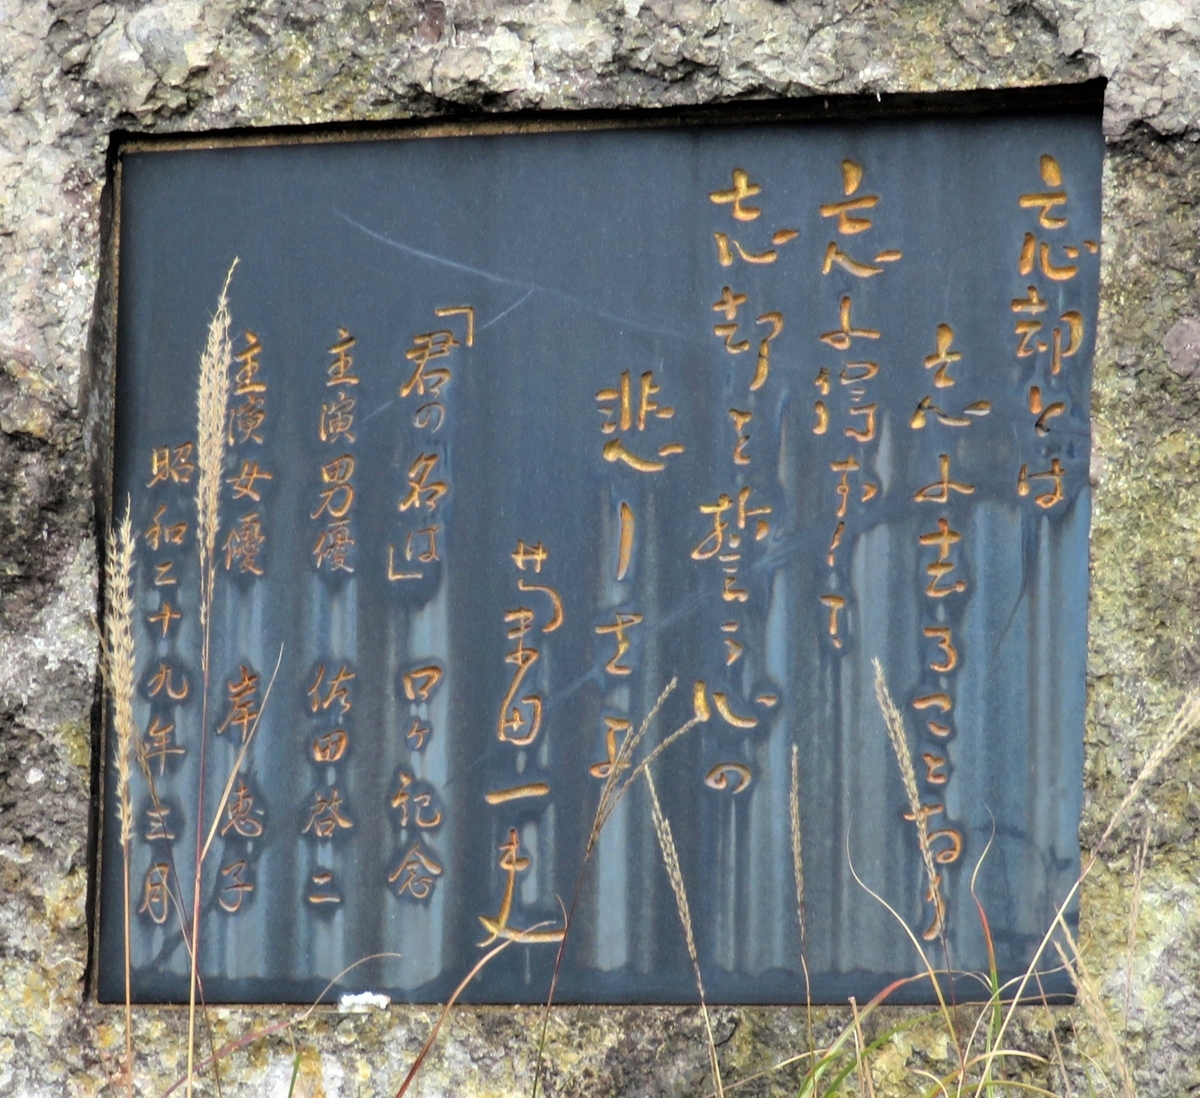 忘却とは
忘れ去ることなり
忘れ得ずして
忘却を誓う心の
悲しさよ
菊田一夫
「君の名は」 ロケ記念
主演男優 佐田啓二
主演女優 岸惠子
昭和二十九年三月